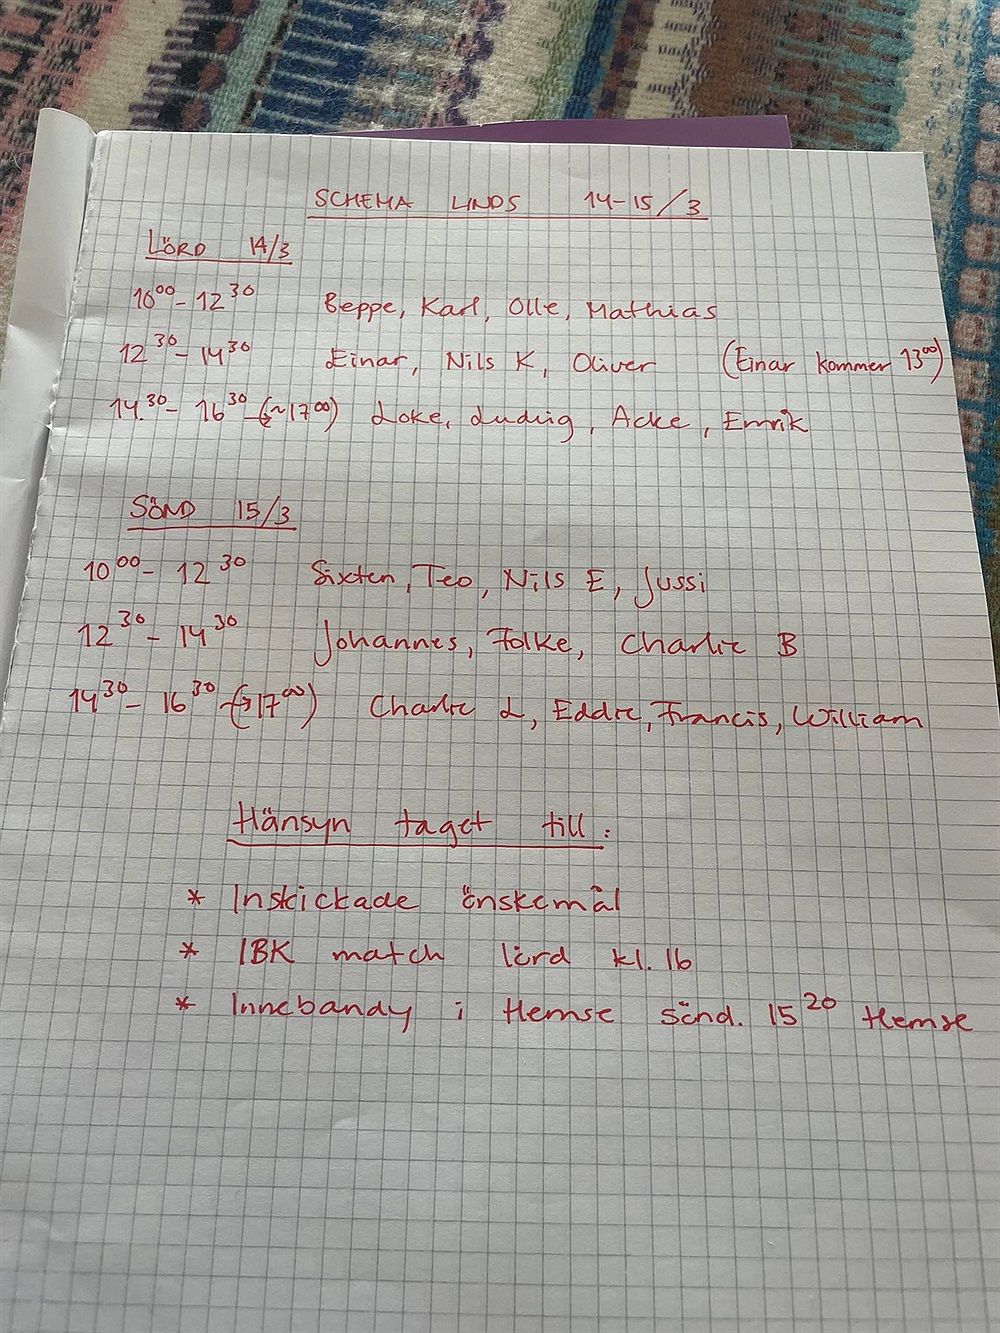 SCHEMA LINDS 14-15/3
LÖRD 14/3
10⁰⁰- 12³⁰ Beppe, Karl, Olle, Mathias
12³⁰- 14³⁰ Einar, Nils K, Oliver (Einar kommer 13⁰⁰)
14.³⁰- 16³⁰-(~17⁰⁰) Loke, Ludvig, Acke, Emrik
SÖND 15/3
10⁰⁰- 12³⁰ Sixten, Teo, Nils E, Jussi
12³⁰- 14³⁰ Johannes, Folke, Charlie B
14³⁰- 16³⁰-(→17⁰⁰) Charlie L, Eddie, Francis, William
Hänsyn taget till:
* Inskickade önskemål
* IBK match lörd kl. 16
* Innebandy i Hemse sönd. 15²⁰ Hemse